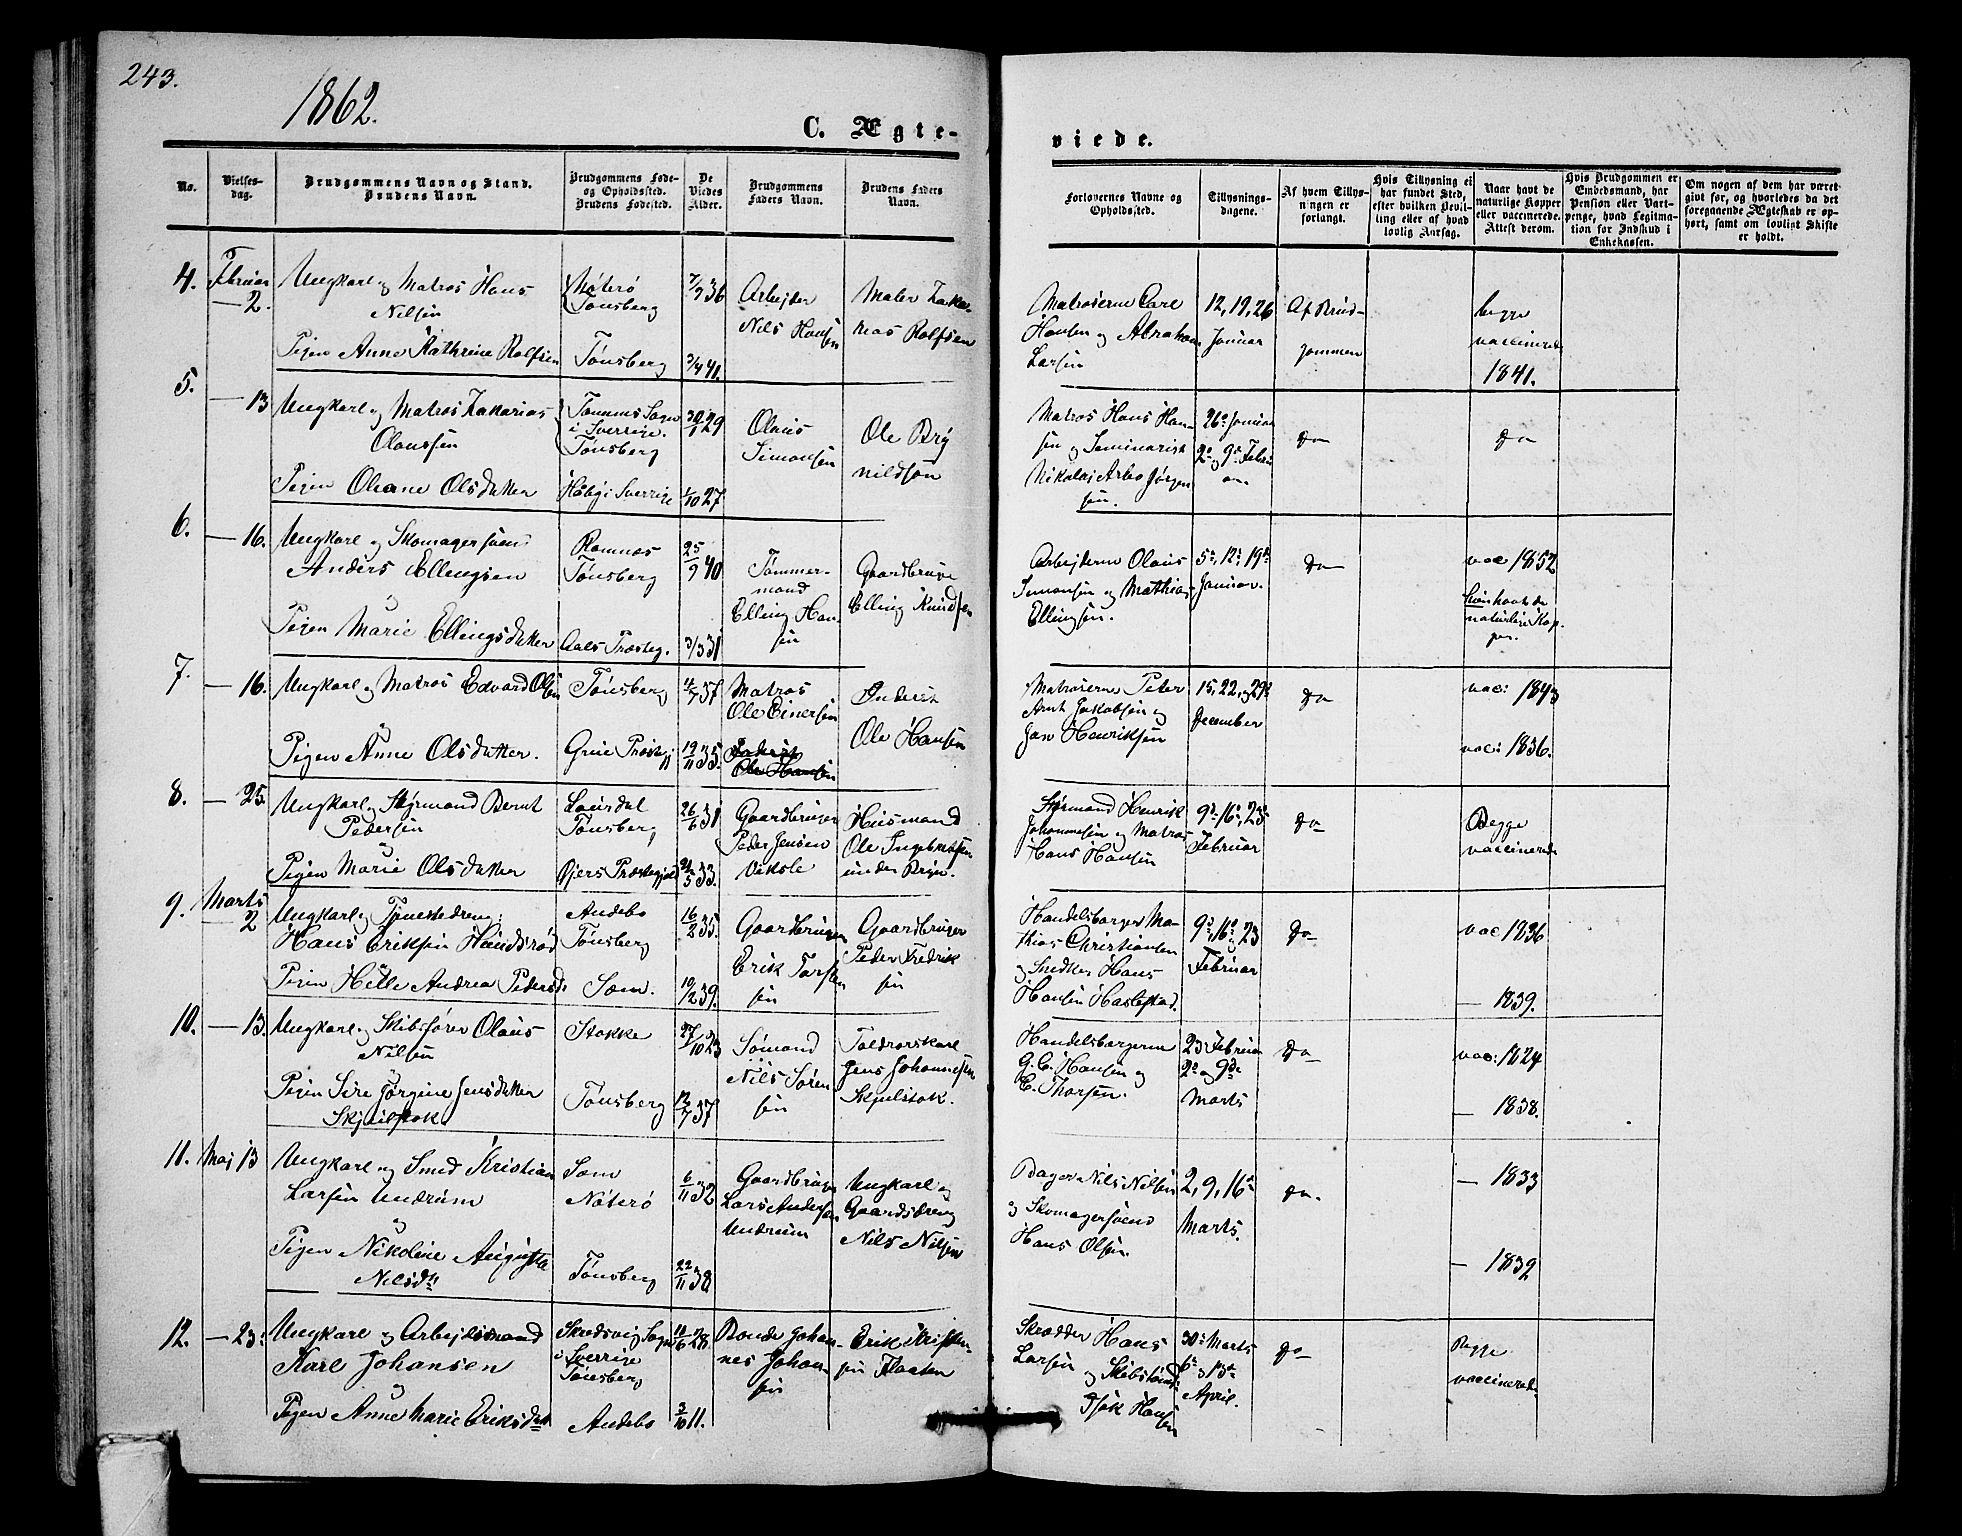 243.
1862.
C. Ægte-
viede.
No.
Vielses-
dag.
Brudgommens Navn og Stand.
Brudens Navn.
Brudgommens Føde-
og Opholdssted.
Brudens Fødested.
De
Viedes
Alder.
Brudgommens
Faders Navn.
Brudens Faders
Navn.
Forlovernes Navne og
Opholdssted.
Tillysnings-
dagene.
Af hvem Tillys-
ningen er
forlangt.
Hvis Tillysning ei
har fundet Sted,
efter hvilken Bevil-
ling eller af hvad
lovlig Aarsag.
Naar havt de
naturlige Kopper
eller vaccinerede.
Attest derom.
Hvis Brudgommen er
Embedsmand, har
Pension eller Vart-
penge, hvad Legitima-
tion for Indskud i
Enkekassen.
Om nogen af dem har været
gift før, og hvorledes da det
foregaaende Ægteskab er op-
hørt, samt om lovligt Skifte
er holdt.
4.
Februar
— 2.
Ungkarl og Matros Hans
Nilsen
Pigen Anne Kathrine Rolfsen
Nøterø
Tønsberg
Tønsberg
7/9 36
3/4 41.
Arbejder
Nils Hansen
Maler Zaka-
rias Rolfsen
Matroserne Carl
Hansen og Abraham
Larsen
12, 19, 26
Januar
Af Brud-
gommen
begge
vaccinerede
1841.
5.
— 13
Ungkarl og Matros Zakarias
Olaussen
Pigen Oleane Olsdatter
Tanums Sogn
i Sverrige.
Tønsberg
i Sverrige
30/1 29
1/10 27
Olaus
Simonsen
Ole Bry
nildsøn
Matros Hans Han-
sen og Seminarist
Nikolaj Arbo Jørgen
sen.
26de Januar
2den og 9de Febru
ar
do
do
6.
— 16.
Ungkarl og Skomagersvend
Anders Ellingsen
og
Pigen Marie Ellingsdatter
Ramnæs
Tønsberg
Aals Præsteg.
25/9 40
3/3 31
Tømmer-
mand
Elling Han-
sen
Gaardbruger
Elling Knudsen
Arbejderne Olaus
Simonsen og Mathias
Ellingsen.
5te, 12te, 19de
Januar.
do
vac 1852
hun havt de
naturlige Kop-
per.
7.
— 16.
Ungkarl og Matros Edvard Olsen
og
Pigen Anne Olsdatter.
Tønsberg
Grue Præstegj
4/7 37
19/11 35.
Matros
Ole Einersen
Inderst
Ole Hansen
Inderst
Ole Hansen
Matroserne Peter
Arnt Jakobsen og
Jan Henriksen
15, 22, og 29de
December
do
vac: 1843
vac: 1836.
8.
— 25.
Ungkarl og Styrmand Bernt
Pedersen
og
Pigen Marie Olsdatter
Laurdal
Tønsberg
Præstegjeld
26/6 31
24/5 33.
Gaardbruger
Peder Jensen
Viksle
Husmand
Ole Ingebretsen
under Bryn.
Styrmand Henrik
Johannesen og Matros
Hans Hansen
9de, 16de, 23de
Februar
do
Begge
vaccinerede
9.
Marts
— 2
Ungkarl og Tjenestedreng
Hans Eriksen Haudsrød
og
Pigen Helle Andrea Pedersd.
Andebo
Tønsberg
Sæm.
16/2 35.
10/12 39.
Gaardbruger
Erik Torsten
sen
Gaardbruger
Peder Fredrik
sen
Handelsborger Ma-
thias Christiansen
og Snedker Hans
Hansen Haslestad.
9de, 16de og 23
Februar
do
vac 1836
— 1839.
10.
— 13.
Ungkarl og Skibsfører Olaus
Nilsen
Pigen Sire Jørgine Jensdatter
Skjelstok
Stokke
Tønsberg
27/10 23
12/7 37
Sømand
Nils Søren
sen
Toldrorskarl
Jens Johannesen
Skjelstok.
Handelsborgerne
G. C. Hansen og
C. Thorsen.
23 Februar
2den og 9de
Marts
do
vac: 1824
— 1838.
11.
Maj 13
Ungkarl og Smed Kristian
Larsen Undrum
og
Pigen Nikoline Augusta
Nilsdtr
Sæm
Nøterø
Tønsberg
6/11 32
22/11 38
Gaardbruger
Lars Andersen
Undrum
Ungkarl og
Gaardsdreng
Nils Nilsen
Bager Nils Nilsen
og Skomagersvend
Hans Olsen
2, 9, 16de
Marts.
do.
— 1833
— 1839
12.
— 23:
Ungkarl og Arbejdsmand
Karl Johansen
og
Pigen Anne Marie Eriksdatt
Skredsvig Sogn
i Sverrige
Tønsberg
Andebo
11/6 28
3/10 11.
Bonde Johan-
nes Johan-
sen
Erik Kristen-
sen Flaaten
Skrædder Hans
Larsen
og Skibstømd
Isak Hansen
30te Marts
6te og 13de
April.
do
Begge
vaccinerede